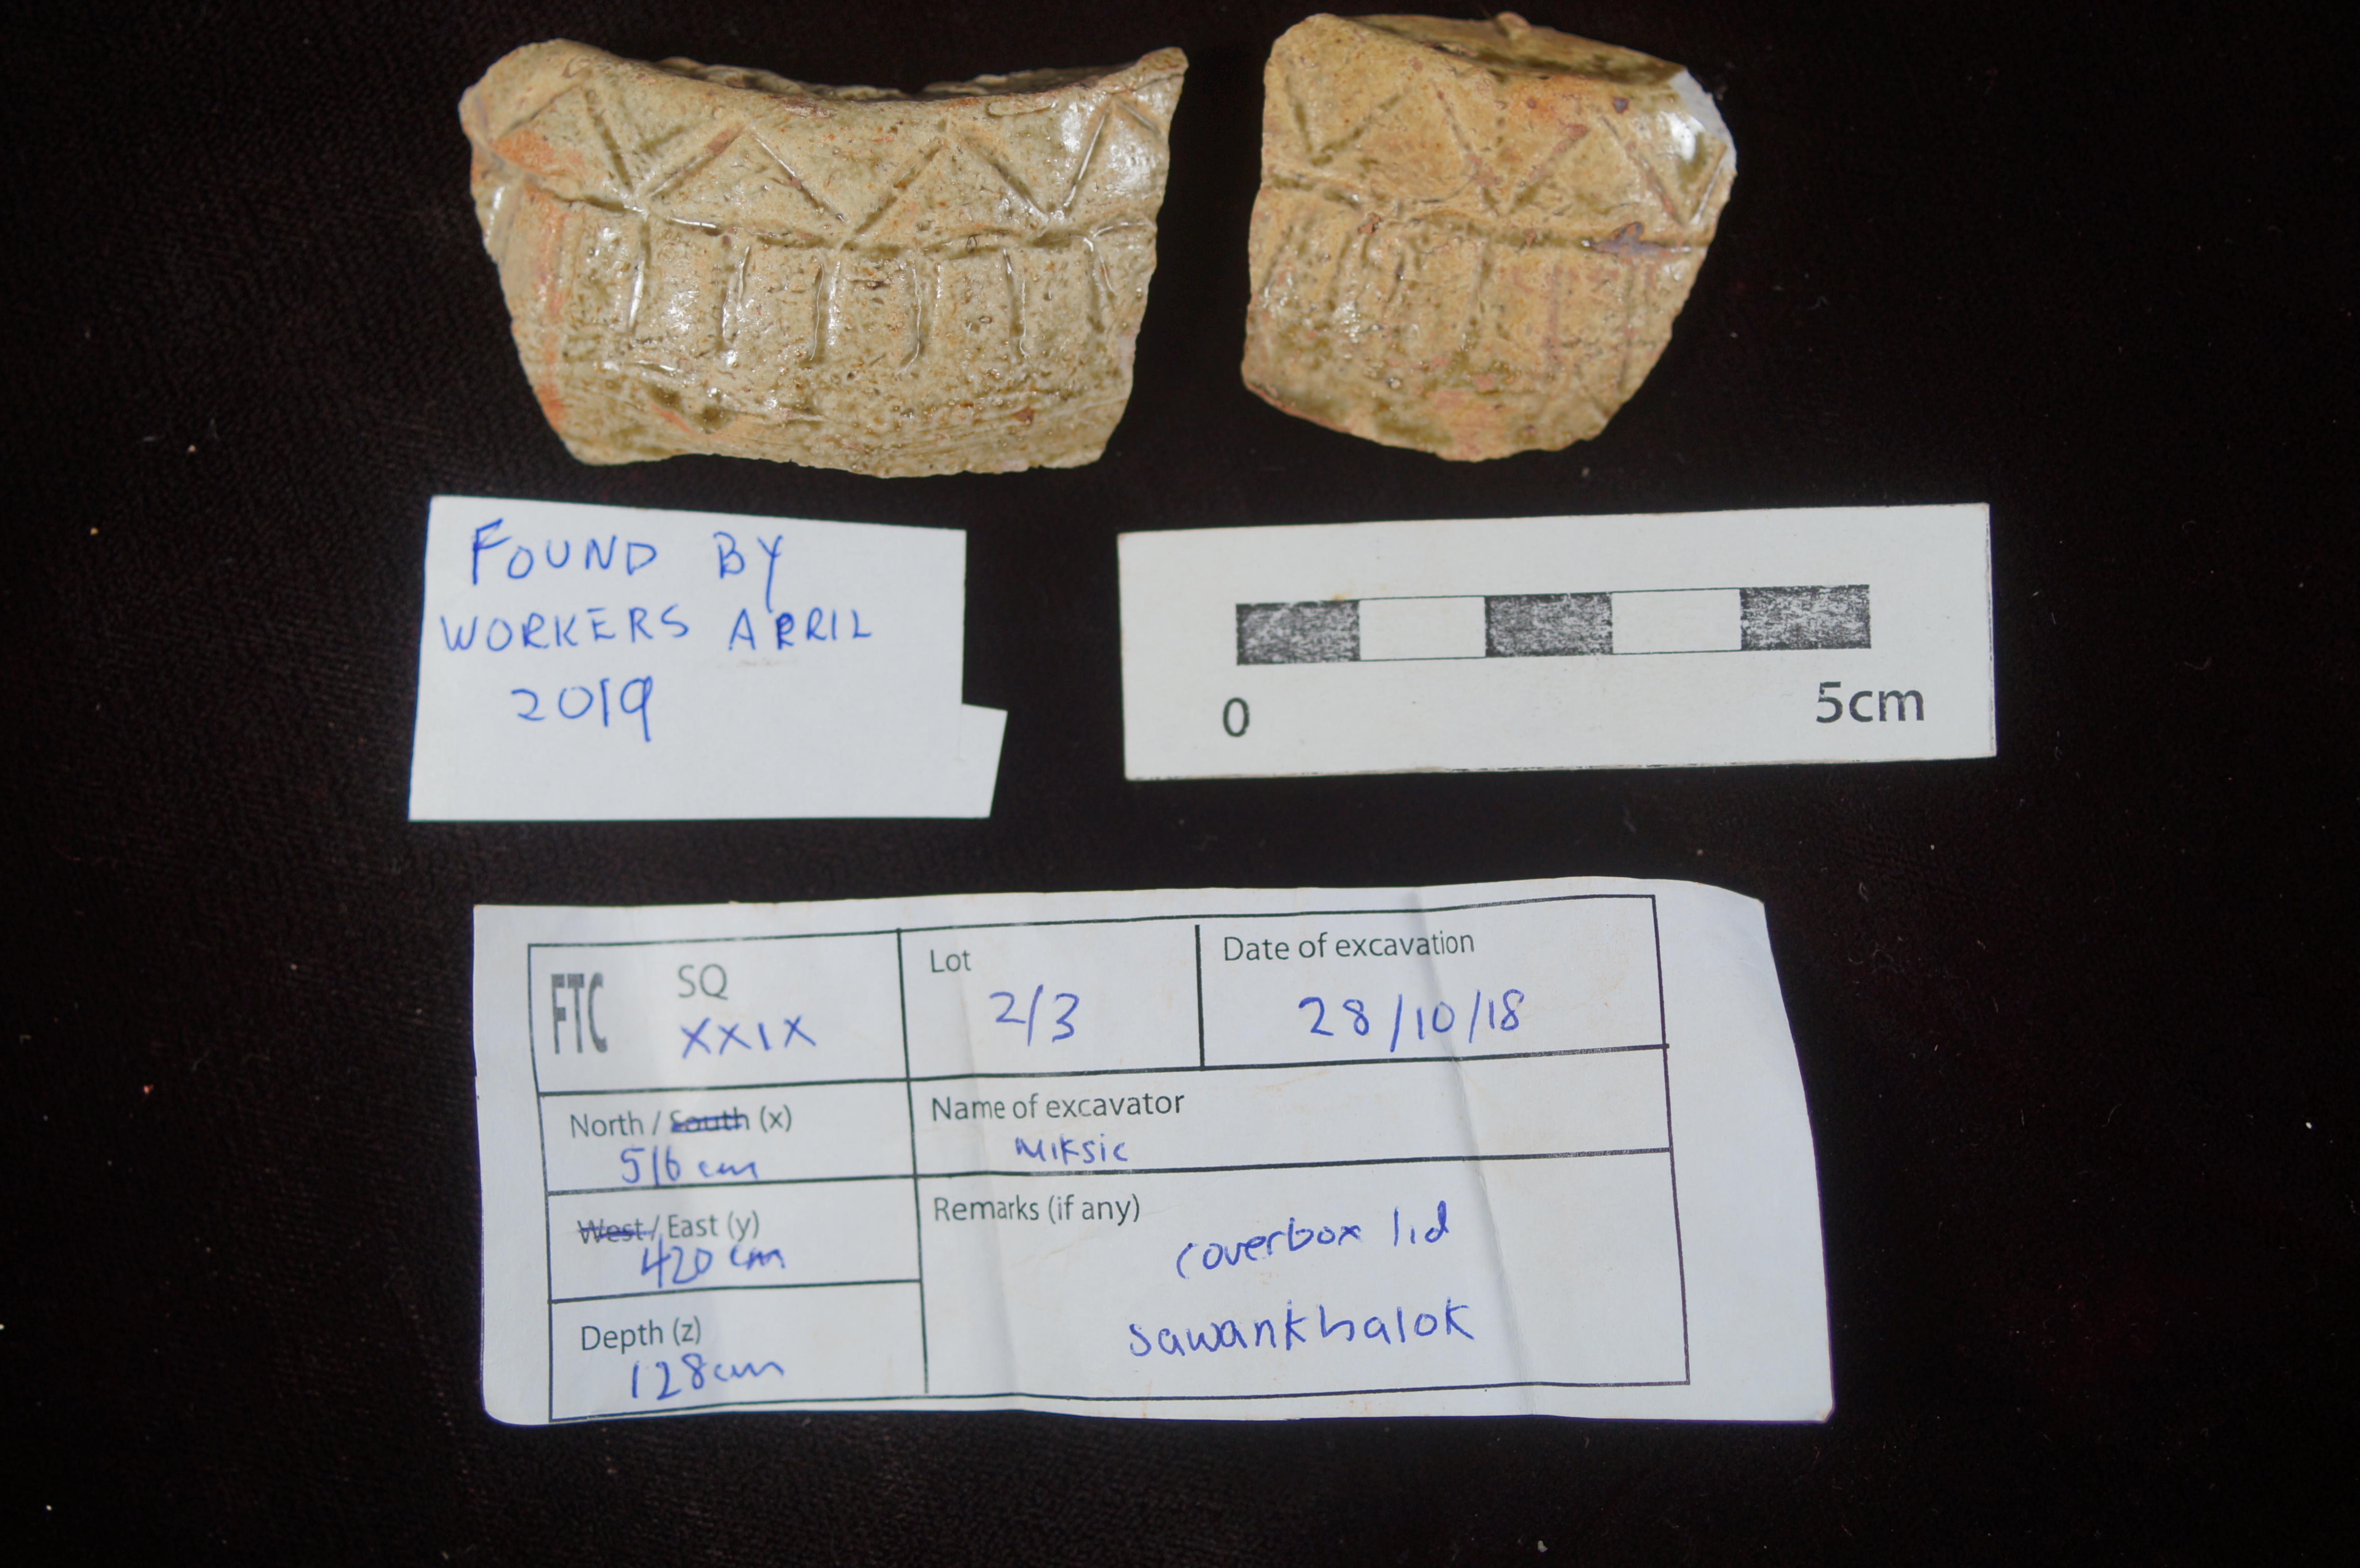 FOUND BY
WORKERS APRIL
2019
0 5cm
FTC SQ
XXIX
Lot
2/3
Date of excavation
28/10/18
North / South (x)
516 cm
Name of excavator
Miksic
West / East (y)
420 cm
Remarks (if any)
coverbox lid
sawankhalok
Depth (z)
128cm